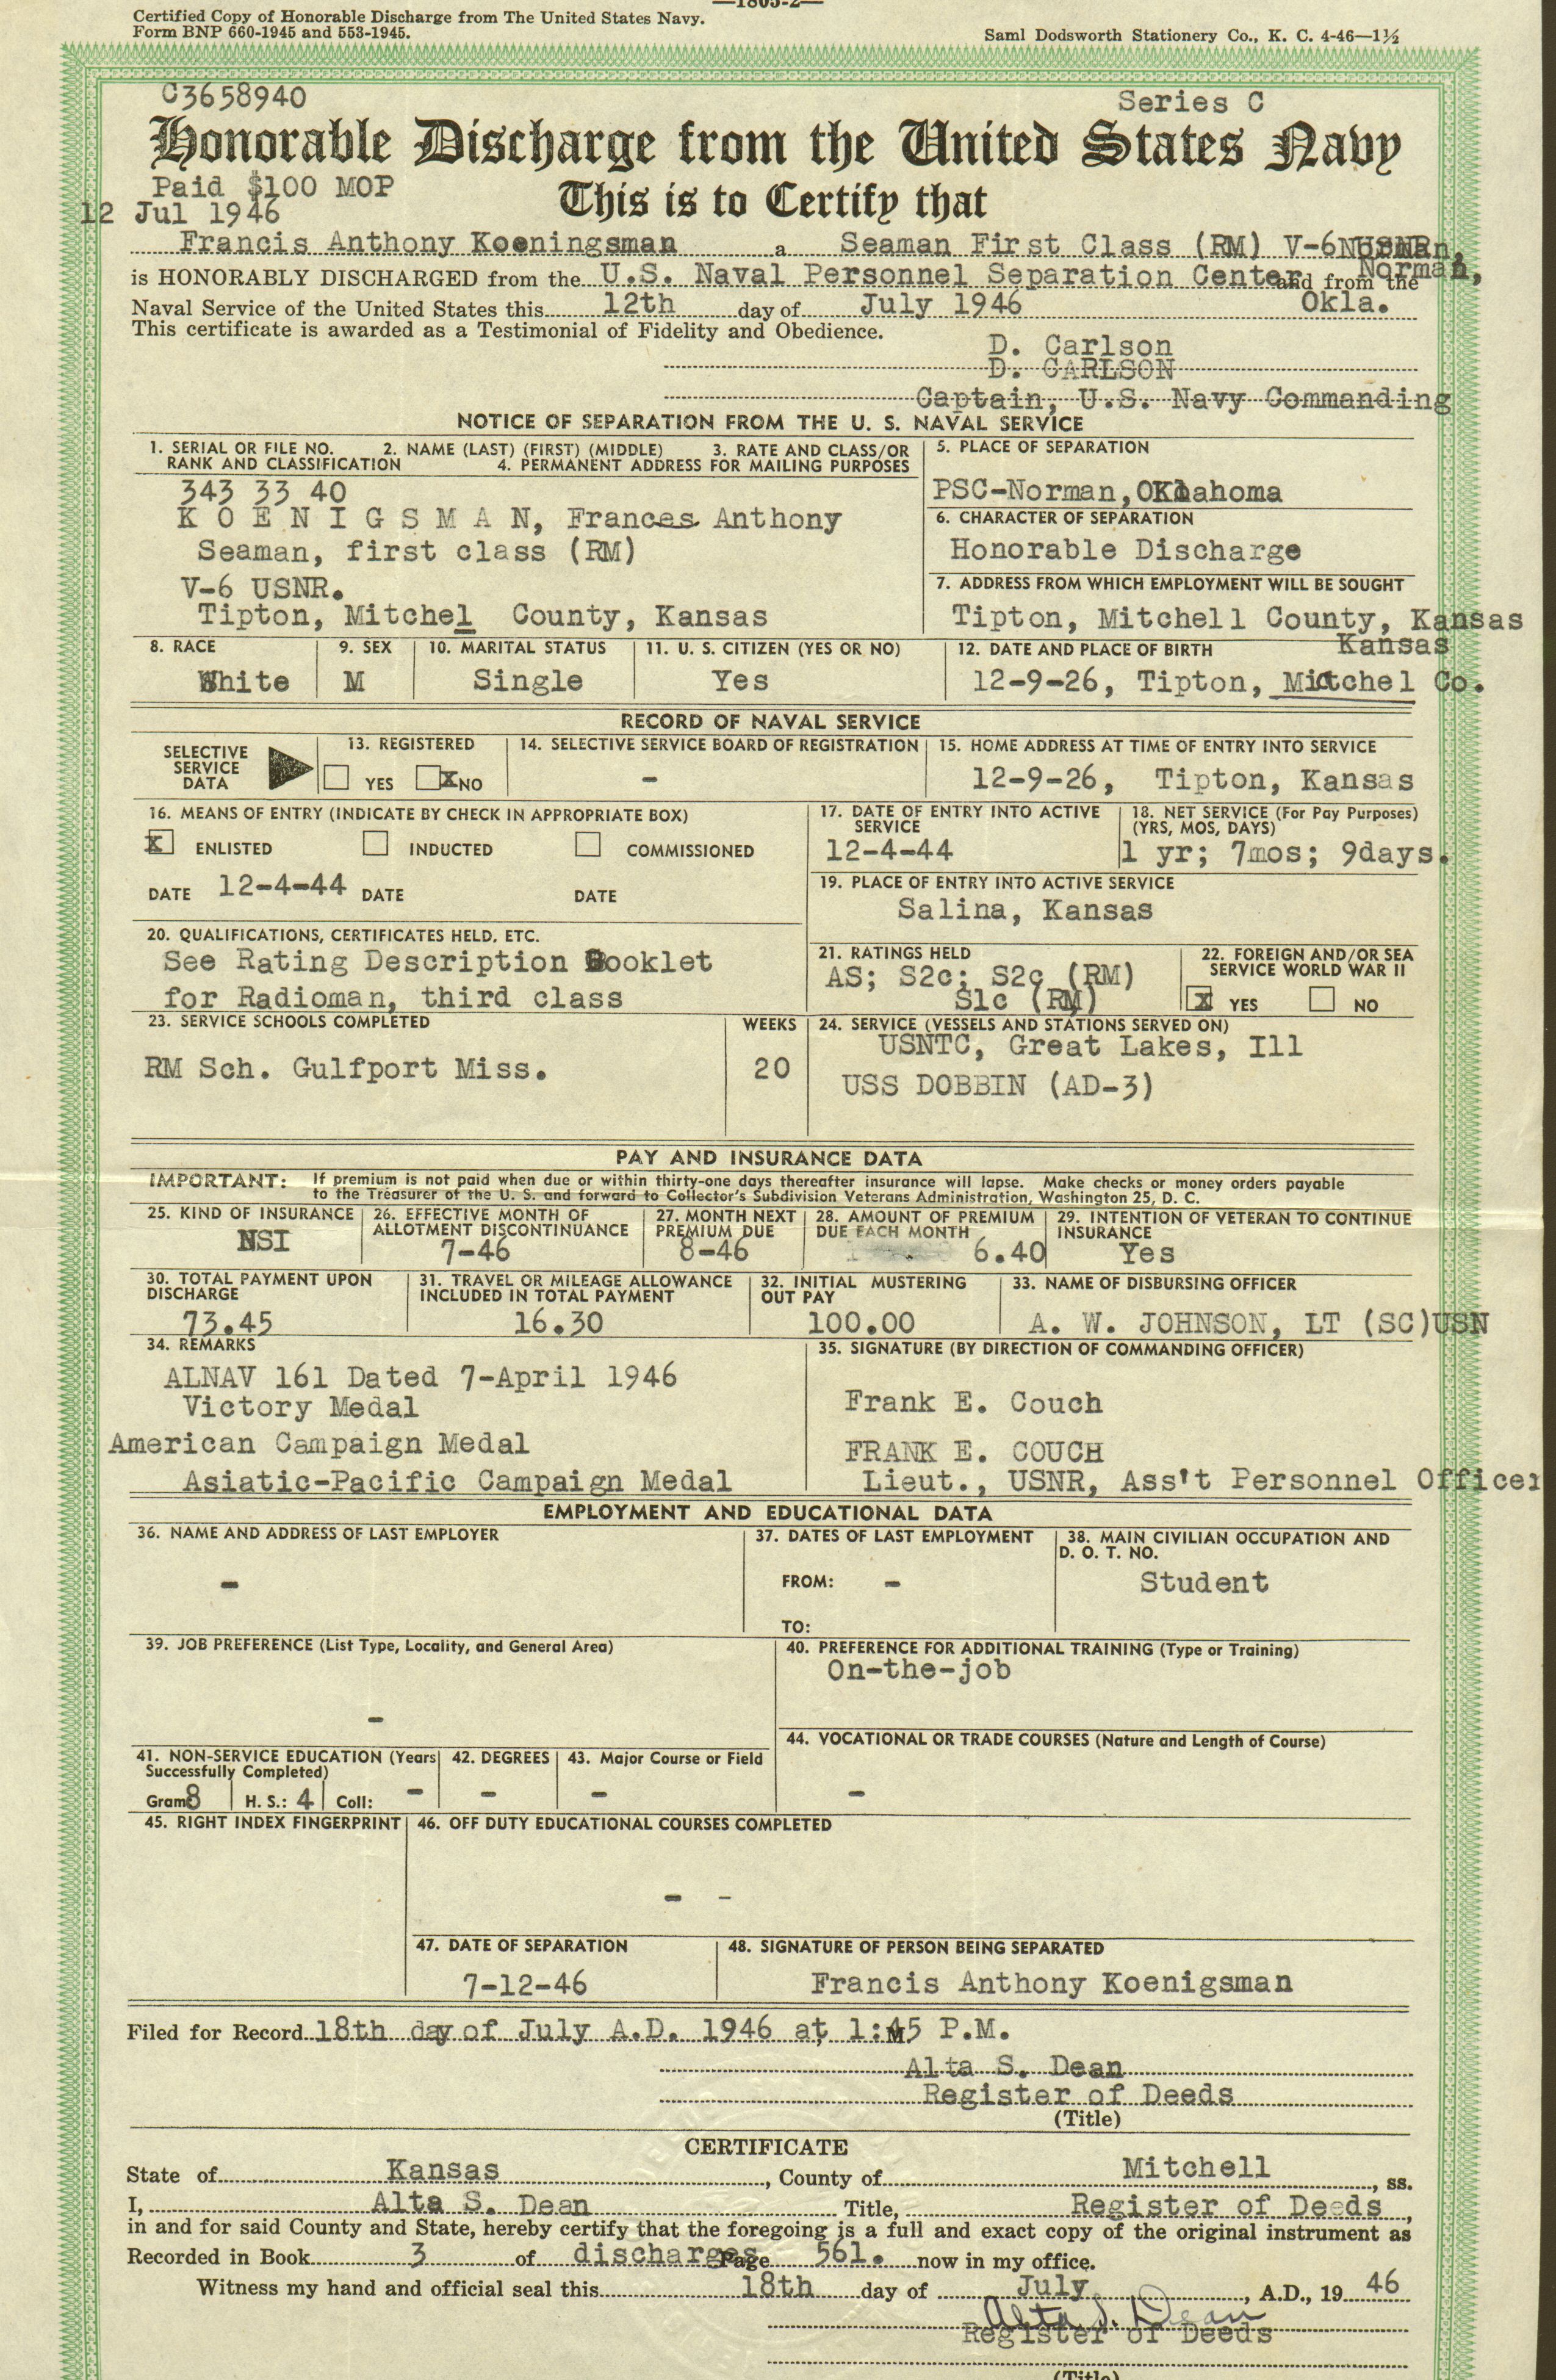 —1805-2—
Certified Copy of Honorable Discharge from The United States Navy.
Form BNP 660-1945 and 553-1945.
Saml Dodsworth Stationery Co., K. C. 4-46—1½
C3658940
Series C
Honorable Discharge from the United States Navy
Paid $100 MOP
This is to Certify that
12 Jul 1946
Francis Anthony Koeningsman a Seaman First Class (RM) V-6
is HONORABLY DISCHARGED from the U.S. Naval Personnel Separation Center and from the Norman,
Naval Service of the United States this 12th day of July 1946 Okla.
This certificate is awarded as a Testimonial of Fidelity and Obedience.
D. Carlson
D. CARLSON
Captain, U.S. Navy Commanding
NOTICE OF SEPARATION FROM THE U. S. NAVAL SERVICE
1. SERIAL OR FILE NO. 2. NAME (LAST) (FIRST) (MIDDLE) 3. RATE AND CLASS/OR
RANK AND CLASSIFICATION 4. PERMANENT ADDRESS FOR MAILING PURPOSES
343 33 40
K O E N I G S M A N, Frances Anthony
Seaman, first class (RM)
V-6 USNR.
Tipton, Mitchel County, Kansas
5. PLACE OF SEPARATION
PSC-Norman, Oklahoma
6. CHARACTER OF SEPARATION
Honorable Discharge
7. ADDRESS FROM WHICH EMPLOYMENT WILL BE SOUGHT
Tipton, Mitchell County, Kansas
8. RACE
White
9. SEX
M
10. MARITAL STATUS
Single
11. U. S. CITIZEN (YES OR NO)
Yes
12. DATE AND PLACE OF BIRTH
Kansas
12-9-26, Tipton, Mitchel Co.
RECORD OF NAVAL SERVICE
SELECTIVE
SERVICE
DATA
13. REGISTERED
YES X NO
14. SELECTIVE SERVICE BOARD OF REGISTRATION
-
15. HOME ADDRESS AT TIME OF ENTRY INTO SERVICE
12-9-26, Tipton, Kansas
16. MEANS OF ENTRY (INDICATE BY CHECK IN APPROPRIATE BOX)
X ENLISTED INDUCTED COMMISSIONED
DATE 12-4-44 DATE DATE
17. DATE OF ENTRY INTO ACTIVE
SERVICE
12-4-44
18. NET SERVICE (For Pay Purposes)
(YRS, MOS, DAYS)
1 yr; 7mos; 9days.
19. PLACE OF ENTRY INTO ACTIVE SERVICE
Salina, Kansas
20. QUALIFICATIONS, CERTIFICATES HELD, ETC.
See Rating Description Booklet
for Radioman, third class
21. RATINGS HELD
AS; S2c; S2c (RM)
S1c (RM)
22. FOREIGN AND/OR SEA
SERVICE WORLD WAR II
X YES NO
23. SERVICE SCHOOLS COMPLETED
WEEKS
RM Sch. Gulfport Miss. 20
24. SERVICE (VESSELS AND STATIONS SERVED ON)
USNTC, Great Lakes, Ill
USS DOBBIN (AD-3)
PAY AND INSURANCE DATA
IMPORTANT: If premium is not paid when due or within thirty-one days thereafter insurance will lapse. Make checks or money orders payable
to the Treasurer of the U. S. and forward to Collector's Subdivision Veterans Administration, Washington 25, D. C.
25. KIND OF INSURANCE
NSI
26. EFFECTIVE MONTH OF
ALLOTMENT DISCONTINUANCE
7-46
27. MONTH NEXT
PREMIUM DUE
8-46
28. AMOUNT OF PREMIUM
DUE EACH MONTH
6.40
29. INTENTION OF VETERAN TO CONTINUE
INSURANCE
Yes
30. TOTAL PAYMENT UPON
DISCHARGE
73.45
31. TRAVEL OR MILEAGE ALLOWANCE
INCLUDED IN TOTAL PAYMENT
16.30
32. INITIAL MUSTERING
OUT PAY
100.00
33. NAME OF DISBURSING OFFICER
A. W. JOHNSON, LT (SC)USN
34. REMARKS
ALNAV 161 Dated 7-April 1946
Victory Medal
American Campaign Medal
Asiatic-Pacific Campaign Medal
35. SIGNATURE (BY DIRECTION OF COMMANDING OFFICER)
Frank E. Couch
FRANK E. COUCH
Lieut., USNR, Ass't Personnel Officer
EMPLOYMENT AND EDUCATIONAL DATA
36. NAME AND ADDRESS OF LAST EMPLOYER
-
37. DATES OF LAST EMPLOYMENT
FROM: -
TO:
38. MAIN CIVILIAN OCCUPATION AND
D. O. T. NO.
Student
39. JOB PREFERENCE (List Type, Locality, and General Area)
-
40. PREFERENCE FOR ADDITIONAL TRAINING (Type or Training)
On-the-job
41. NON-SERVICE EDUCATION (Years
Successfully Completed)
Gram: 8 H. S.: 4 Coll: -
42. DEGREES
-
43. Major Course or Field
-
44. VOCATIONAL OR TRADE COURSES (Nature and Length of Course)
-
45. RIGHT INDEX FINGERPRINT
46. OFF DUTY EDUCATIONAL COURSES COMPLETED
- -
47. DATE OF SEPARATION
7-12-46
48. SIGNATURE OF PERSON BEING SEPARATED
Francis Anthony Koenigsman
Filed for Record 18th day of July A.D. 1946 at 1:45 P.M.
Alta S. Dean
Register of Deeds
(Title)
CERTIFICATE
State of Kansas, County of Mitchell, ss.
I, Alta S. Dean Title, Register of Deeds,
in and for said County and State, hereby certify that the foregoing is a full and exact copy of the original instrument as
Recorded in Book 3 of discharges Page 561. now in my office.
Witness my hand and official seal this 18th day of July, A.D., 19 46
Alta S. Dean
Register of Deeds
(Title)